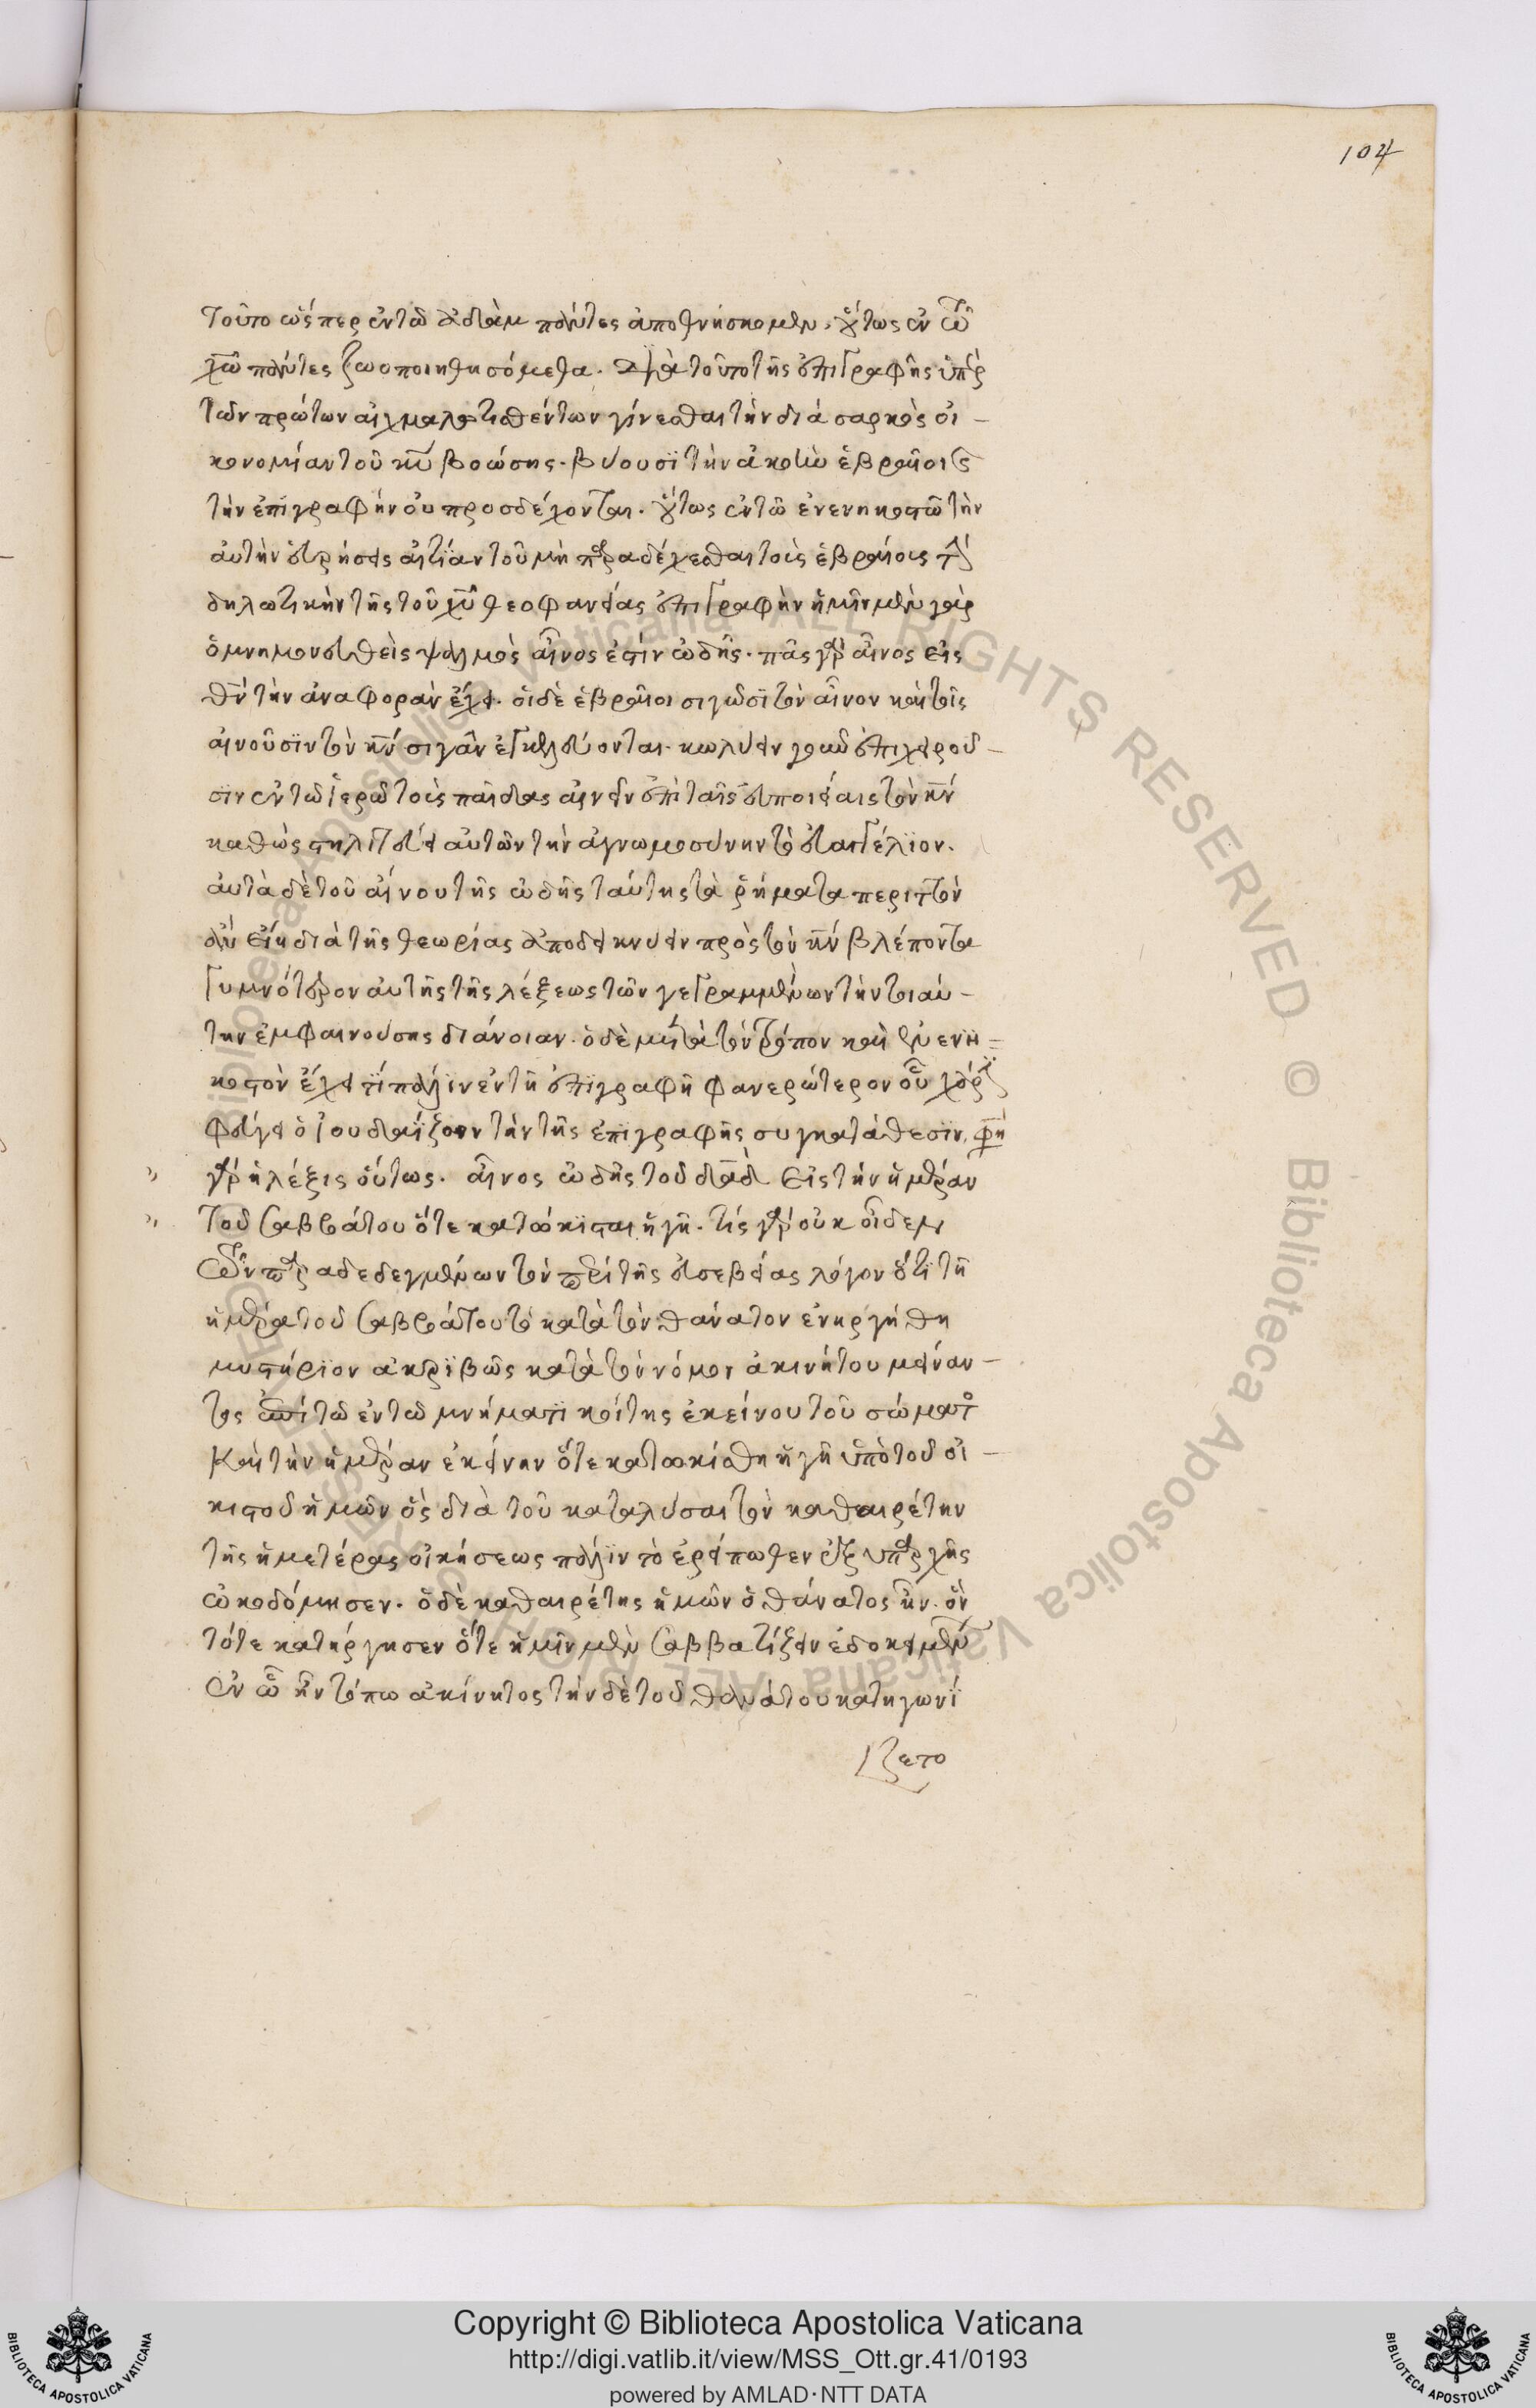 104
τοῦτο ὥσπερ ἐν τῷ ἀδὰμ πάντες ἀποθνήσκομεν, οὕτως ἐν τῶ
χῶ πάντες ζωοποιηθησόμεθα. διὰ τοῦτο τῆς ἐπιγραφῆς ὑπὲρ
τῶν πρώτων αἰχμαλωτισθέντων γίνεσθαι τὴν διά σαρκὸς οἰ-
κονομίαν τοῦ κυ βοώσης. βύουσϊ τὴν ἀκοὴν ἑβραῖοι καὶ
τὴν ἐπϊγραφὴν οὐ προσδέχονται. οὕτως ἐν τῶ ἐνενηκοστῶ τὴν
αὐτὴν εὑρήσεις αἰτίαν τοῦ μὴ παραδέχεσθαι τοὶς ἑβραίοις τὴν
δηλωτικὴν τῆς τοῦ χυ θεοφανείας ἐπιγραφὴν ἡμῖν μὲν γὰρ
ὁ μνημονευθεὶς ψαλμὸς αἶνος ἐστὶν ὠδῆς. πᾶς γὰρ αἶνος εἰς
θν τὴν ἀναφορὰν ἔχει. οἱ δὲ ἑβραῖοι σιγῶσϊ τὸν αἶνον καὶ τοῖς
αἰνοῦσϊν τὸν κν σιγᾶν ἐγκελεύονται. κωλύειν γὰρ ἐπιχειροῦ-
σϊν ἐν τῶ ἱερῶ τοὶς παῖδας αἰνεῖν ἐπὶ ταῖς εὐποιίαις τὸν κν
καθὼς στηλιτεύει αὐτῶν τὴν ἀγνωμοσύνην τὸ εὐαγγέλϊον.
αὐτὰ δὲ τοῦ αἴνου τῆς ὠδῆς ταύτης τὰ ῥήματα περιττὸν
ἂν εἴη διὰ τῆς θεωρίας ἀποδεικνύειν πρὸς τὸν κν βλέποντα
γυμνότερον αὐτῆς τῆς λέξεως τῶν γεγραμμένων τὴν τοιαύ-
την ἐμφαινούσης διάνοιαν. ὁ δὲ μετὰ τὸν τόπον καὶ ἐνενη=
κοστὸν ἔχει τϊ πάλϊν ἐν τῆ ἐπϊγραφῆ φανερώτερον οὗ χάριν
φεύγει ὁ ἰουδαΐζων τὴν τῆς ἐπϊγραφῆς συγκατάθεσϊν. φη
γὰρ ἡ λέξις οὕτως. αἶνος ὠδῆς τοῦ δαδ εἰς τὴν ἡμέραν
τοῦ σαββάτου ὅτε κατώκϊσται ἡ γῆ. τίς γὰρ οὐκ οἶδεν
τῶν παραδεδεγμένων τὸν περὶ τῆς εὐσεβείας λόγον ὅτι τῆ
ἡμέρα τοῦ σαββάτου τὸ κατὰ τὸν θάνατον ἐνηργήθη
μυστήριον ἀκριβῶς κατὰ τὸν νόμον ἀκινήτου μείναν-
τος ἐπὶ τῶ ἐν τῶ μνήματι κοίτης ἐκείνου τοῦ σώματος
καὶ τὴν ἡμέραν ἐκείνην ὅτε κατωκίσθη ἡ γῆ ὑπὸ τοῦ οἰ-
κιστοῦ ἡμῶν ὃς διὰ τοῦ καταλύσαι τὸν καθαιρέτην
τῆς ἡμετέρας οἰκήσεως πάλϊν τὸ ἐρείπωθεν ἐξ ὑπαρχῆς
ὠκοδόμησεν. ὁ δὲ καθαιρέτης ἡμῶν ὁ θάνατος ἦν. ὃν
τότε κατήργησεν ὅτε ἡμῖν μὲν σαββατίζειν ἐδόκει μὲν
ἐν ὧ ἦν τόπω ἀκίνητος τὴν δὲ τοῦ θανάτου κατηγωνί
ζετο
Copyright © Biblioteca Apostolica Vaticana
http://digi.vatlib.it/view/MSS_Ott.gr.41/0193
powered by AMLAD·NTT DATA